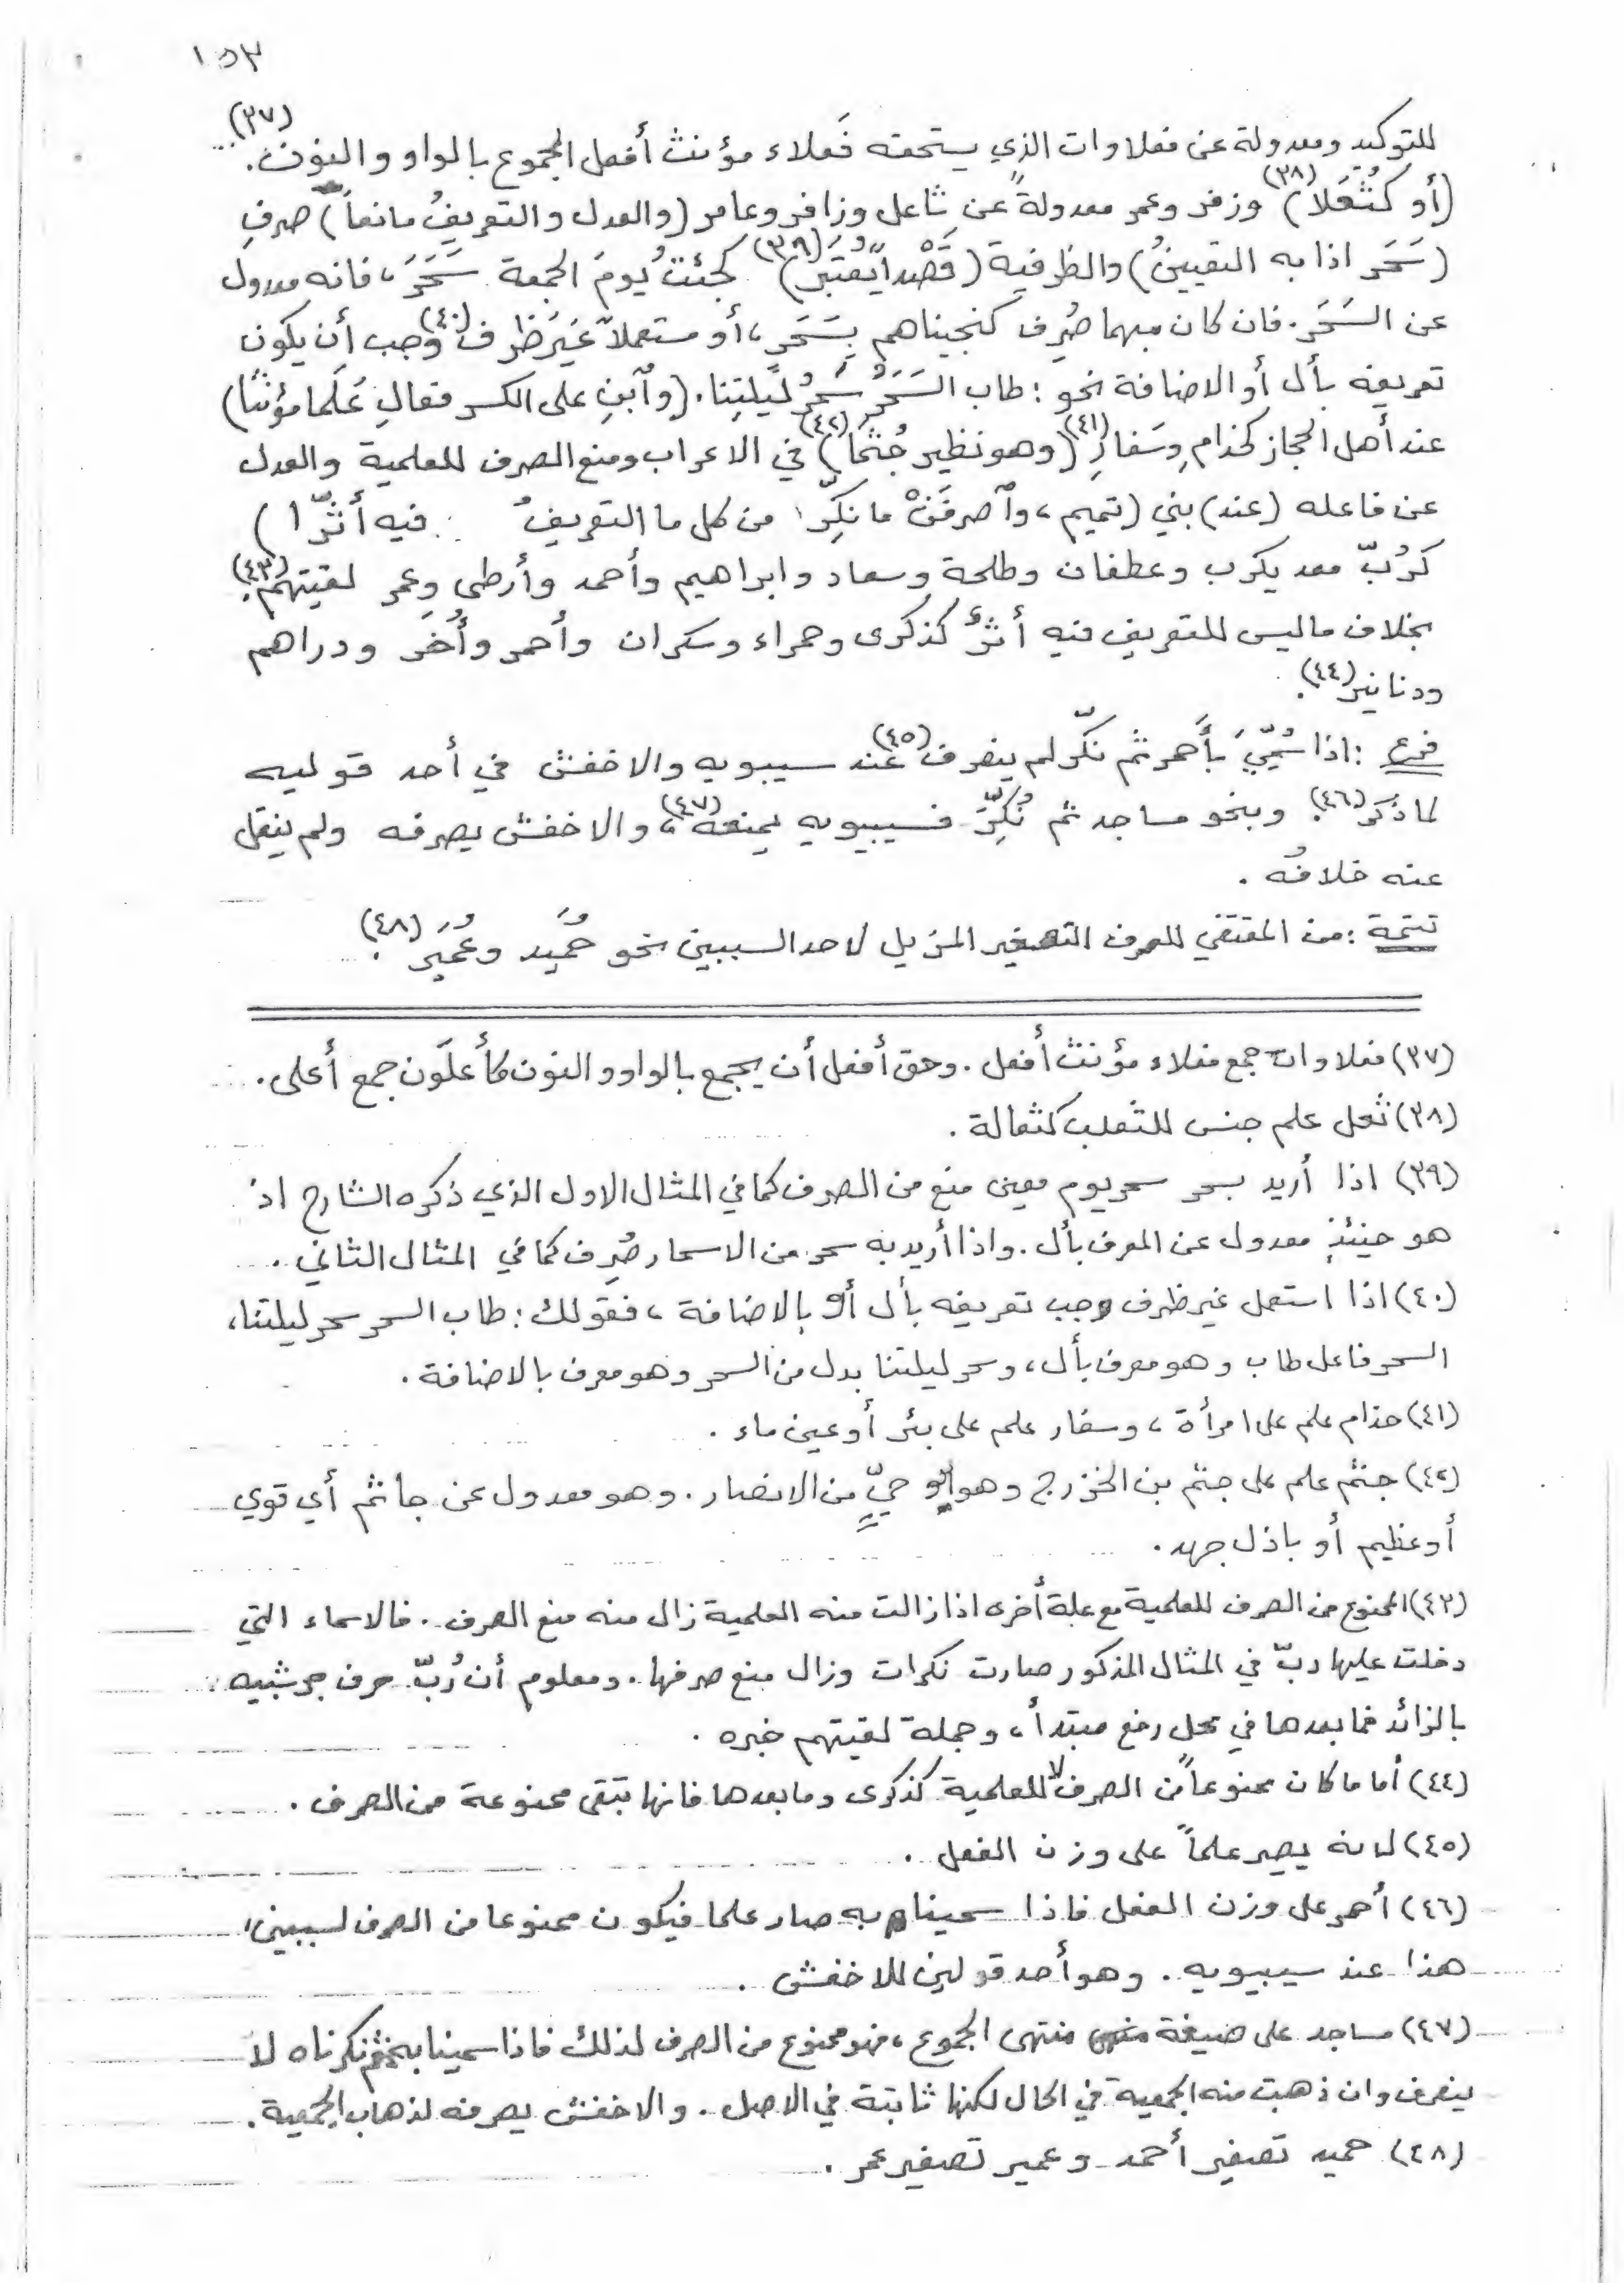 ١٥٣
للتوكيد ومعدولة عن فعلاوات الذي يستحقه فَعلاء مؤنث أفعل المجموع بالواو والنون.(٣٧)
(أو كثُعَلا)(٣٨) وزفر وعمر معدولةً عن ثاعل وزافر وعامر (والعدل والتعريفُ مانعاً) صرفِ
(سَحَر اذا به التعيينُ) والظرفية (قَصْداً يُعْتبَرُ)(٣٩) كجئتُ يومَ الجمعة سَحَرَ، فانه معدول
عن السَحَر. فان كان مبهما صُرِف كنجيناهم بِسَحَرٍ، أو مستعملاً غيَرَ ظرف(٤٠) وجب أن يكون
تعريفه بأل أو الاضافة نحو: طاب السَحَرُ سَحَرُ ليلتِنا. (وٱبنِ على الكسر فعالِ عَلَما مؤنثا)
عند أهل الحجاز كحذامِ وسَفارِ(٤١) (وهو نظير جُثَما)(٤٢) في الاعراب ومنع الصرف للعلمية والعدل
عن فاعله (عند) بني (تميم، وٱصرفَنْ ما نكِّرا من كل ما التعريفُ فيه أثّرا)
كرُبّ معد يكرب وغطفان وطلحة وسعاد وابراهيم وأحمد وأرطى وعمر لقيتهم(٤٣).
بخلاف ماليس للتعريف فيه أثرٌ كذكرى وحمراء وسكران وأحمر وأُخَر ودراهم
ودنانير(٤٤).
فرع: اذا سُمّيَ بأَحمر ثم نكّر لم ينصرف(٤٥) عند سيبويه والاخفش في أحد قوليه
لما ذُكَر(٤٦). وبنحو مساجد ثم نُكِّرَ فسيبويه يمنعه(٤٧)، والاخفش يصرفه ولم ينقل
عنه خلافُه.
تتمة: من المقتضي للصرف التصغير المزيل لاحد السببين نحو حُمَيد وعُمَير(٤٨).
(٣٧) فعلاوات جمع فعلاء مؤنث أفعل. وحق أفعل أن يجمع بالواو والنون كأعلَون جمع أعلى.
(٣٨) ثعل علم جنس للثعلب كثعالة.
(٣٩) اذا أريد بسحر سحر يوم معين منع من الصرف كما في المثال الاول الذي ذكره الشارح اذ
هو حينئذٍ معدول عن المعرف بأل. واذا أريد به سحر من الاسحار صُرِف كما في المثال الثاني.
(٤٠) اذا استعمل غير ظرف وجب تعريفه بأل أو بالاضافة، فقولك: طاب السحر سحر ليلتنا،
السحر فاعل طاب وهو معرف بأل، وسحر ليلتنا بدل من السحر وهو معرف بالاضافة.
(٤١) حذام علم على امرأة، وسفار علم على بئر أو عين ماء.
(٤٢) جثم علم على جثم بن الخزرج وهو أبو حيٍّ من الانصار. وهو معدول عن جاثم أي قوي
أو عظيم أو باذل جهد.
(٤٣) الممنوع من الصرف للعلمية مع علة أخرى اذا زالت منه العلمية زال منه منع الصرف. فالاسماء التي
دخلت عليها ربّ في المثال المذكور صارت نكرات وزال منع صرفها. ومعلوم أن رُبّ حرف جر شبيه
بالزائد فما بعدها في محل رفع مبتدأ، وجملة لقيتهم خبره.
(٤٤) أما ما كان ممنوعاً من الصرف لا للعلمية كذكرى وما بعدها فانها تبقى ممنوعة من الصرف.
(٤٥) لانه يصير علماً على وزن الفعل.
(٤٦) أحمر على وزن الفعل فاذا سمينا به صار علما فيكون ممنوعا من الصرف لسببين،
هذا عند سيبويه. وهو أحد قولين للاخفش.
(٤٧) مساجد على صيغة منتهى الجموع، فهو ممنوع من الصرف لذلك فاذا سمينا به ثم نكرناه لا
ينصرف وان ذهبت منه الجمعية في الحال لكنها ثابتة في الاصل. والاخفش يصرفه لذهاب الجمعية.
(٤٨) حميد تصغير أحمد وعمير تصغير عمر.